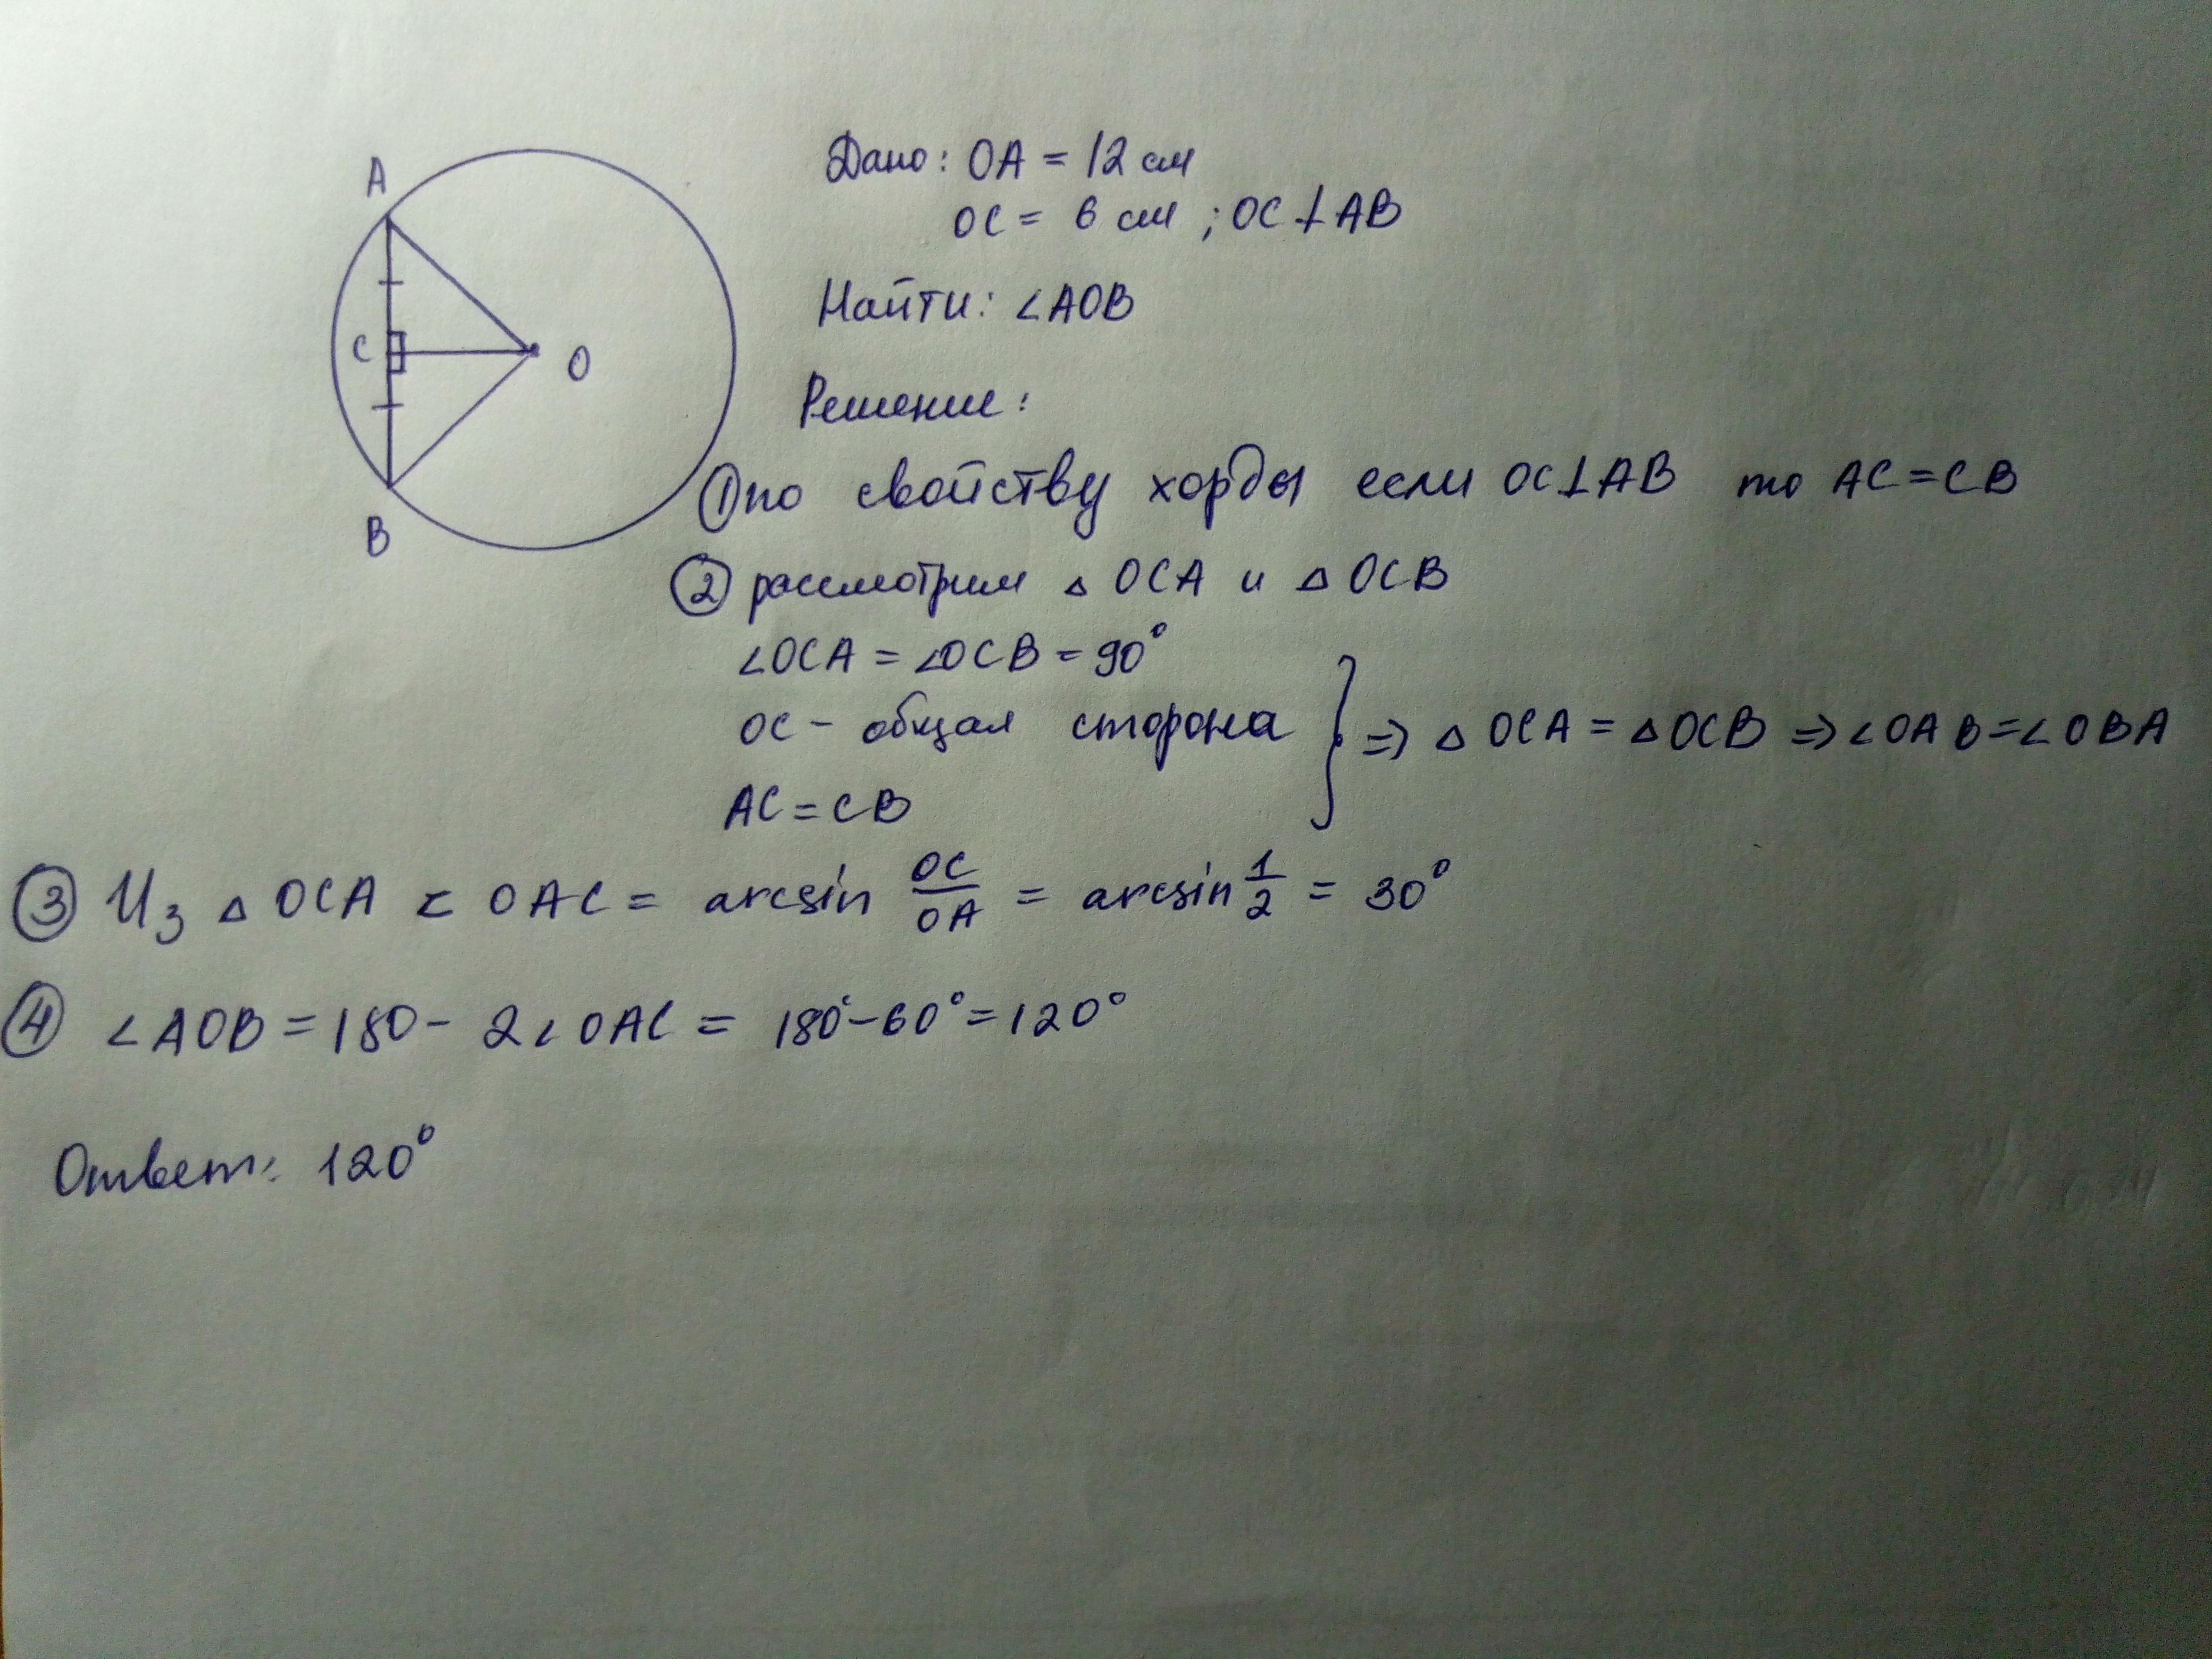 A
C
O
B
Дано: OA = 12 см
OC = 6 см ; OC ⊥ AB
Найти: ∠AOB
Решение:
① по свойству хорды если OC⊥AB то AC=CB
② рассмотрим △ OCA и △ OCB
∠OCA = ∠OCB = 90°
OC – общая сторона } ⇒ △ OCA = △OCB ⇒ ∠OAB=∠OBA
AC = CB
③ Из △ OCA ∠ OAC = arcsin OC/OA = arcsin 1/2 = 30°
④ ∠AOB = 180 – 2∠OAC = 180°–60°=120°
Ответ: 120°